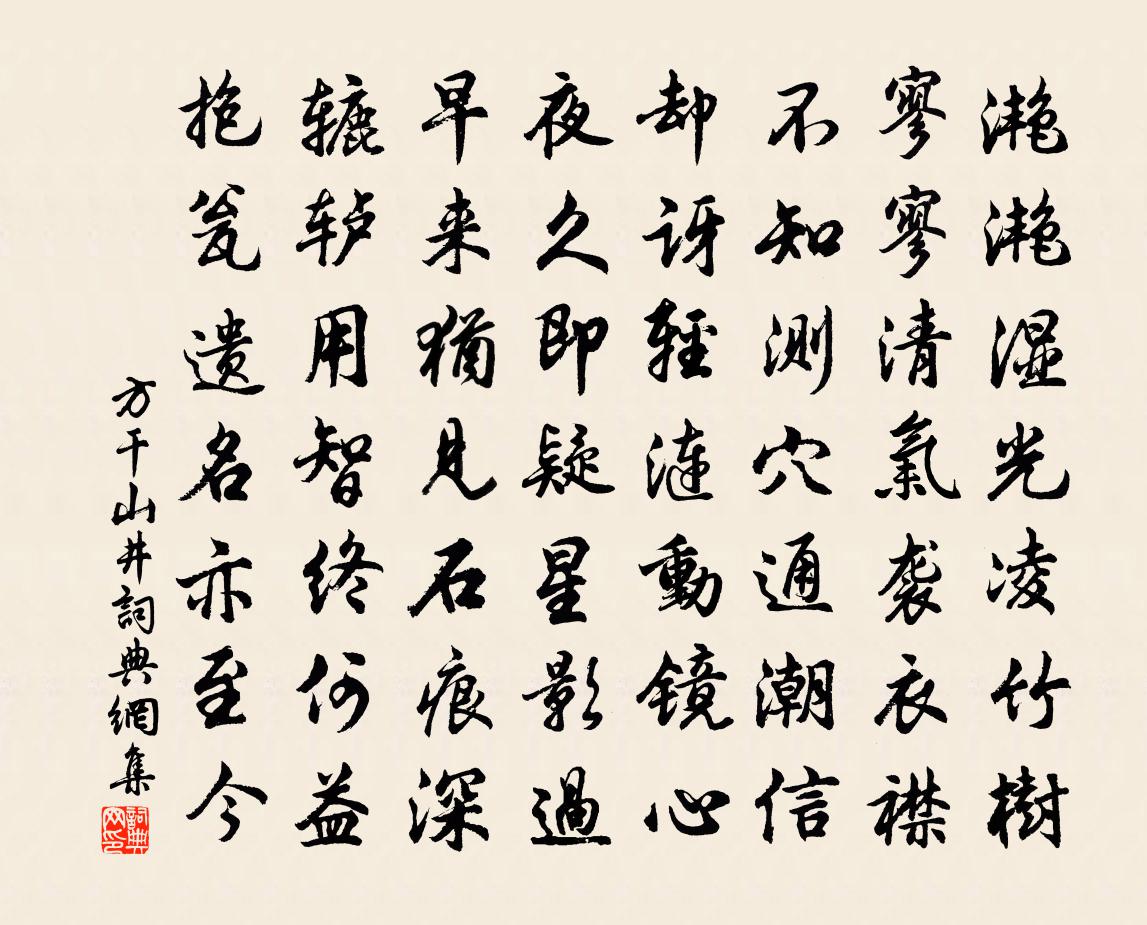 滟滟湿光凌竹樹
寥寥清氣袭衣襟
不知测穴通潮信
却讶輕漣動镜心
夜久即疑星影過
早来猶見石痕深
辘轳用智终何益
抱瓮遗名亦至今
方干山井詞典網集
詞典网印